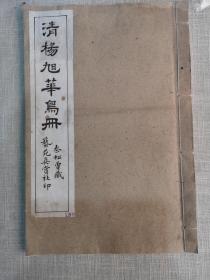 清楊旭華鳥冊
泰松堂藏
藝苑真賞社印